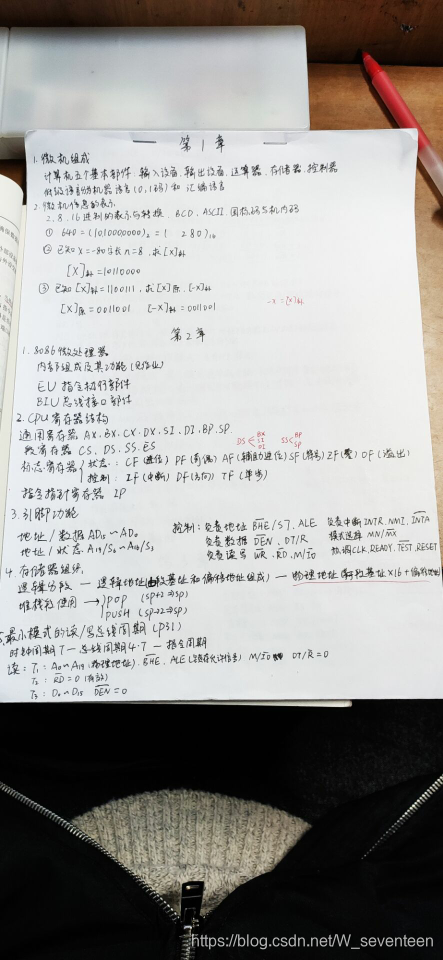 第1章
1.微机组成
计算机五个基本部件:输入设备、输出设备、运算器、存储器、控制器
低级语言分机器语言(0,1码)和汇编语言
2.微机信息的表示
2、8、16进制的表示与转换、BCD、ASCII、国标码与机内码
① 640=(1010000000)₂=( 280)₁₆
② 已知X=-80字长n=8,求[X]补
[X]补=10110000
③ 已知[X]补=1100111,求[X]原、[-X]补
[X]原=0011001 [-X]补=0011001
-X=[X]补
第2章
1.8086微处理器
内部组成及其功能
EU 指令执行部件
BIU 总线接口部件
2.CPU寄存器结构
通用寄存器 AX、BX、CX、DX、SI、DI、BP、SP
DS BX SI DI SS BP SP
段寄存器 CS、DS、SS、ES
标志寄存器 状态:CF(进位) PF(奇偶) AF(辅助进位) SF(符号) ZF(零) OF(溢出)
控制:IF(中断) DF(方向) TF(单步)
指令指针寄存器 IP
3.引脚功能
地址/数据 AD₁₅~AD₀
地址/状态 A₁₉/S₆~A₁₆/S₃
控制:负责地址 BHE/S7、ALE 负责中断 INTR、NMI、INTA
负责数据 DEN、DT/R 模式选择 MN/MX
负责读写 WR、RD、M/IO 协调 CLK、READY、TEST、RESET
4.存储器组织
逻辑分段 — 逻辑地址(由段基址和偏移地址组成) — 物理地址=段基址×16+偏移地址
堆栈的使用 → POP (SP+2⇒SP)
PUSH (SP-2⇒SP)
5.最小模式的读/写总线周期(P31)
时钟周期T — 总线周期4·T — 指令周期
读:T₁:A₀~A₁₉(物理地址)、BHE、ALE(锁存允许信号) M/IO DT/R=0
T₂:RD=0(有效)
T₃:D₀~D₁₅ DEN=0
https://blog.csdn.net/W_seventeen